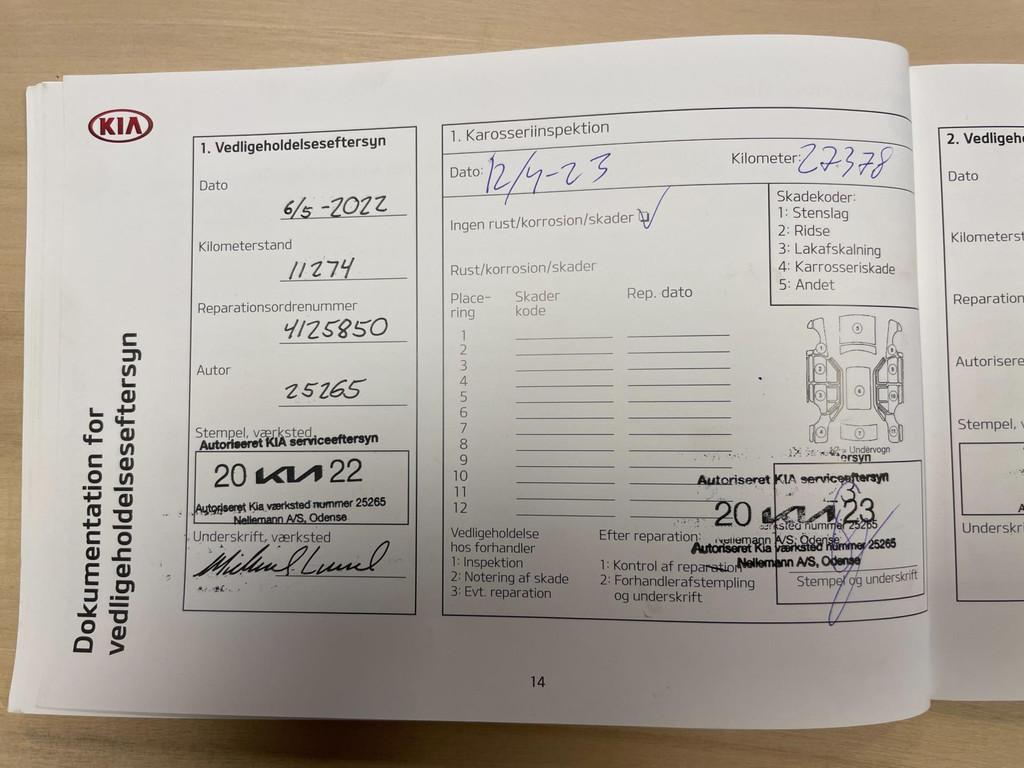 KIA
Dokumentation for
vedligeholdelseseftersyn
1. Vedligeholdelseseftersyn
Dato
6/5 -2022
Kilometerstand
11274
Reparationsordrenummer
4125850
Autor
25265
Stempel, værksted
Autoriseret KIA serviceeftersyn
20 KIA 22
Autoriseret Kia værksted nummer 25265
Nellemann A/S, Odense
Underskrift, værksted
1. Karosseriinspektion
Dato: 12/4-23
Kilometer: 27378
Ingen rust/korrosion/skader
Skadekoder:
1: Stenslag
2: Ridse
3: Lakafskalning
4: Karrosseriskade
5: Andet
Rust/korrosion/skader
Place-
ring
Skader
kode
Rep. dato
1
2
3
4
5
6
7
8
9
10
11
12
Undervogn
ersyn
Autoriseret KIA serviceeftersyn
20 KIA 23
værksted nummer 25265
Nellemann A/S, Odense
Autoriseret Kia værksted nummer 25265
Nellemann A/S, Odense
Stempel og underskrift
Vedligeholdelse
hos forhandler
1: Inspektion
2: Notering af skade
3: Evt. reparation
Efter reparation:
1: Kontrol af reparation
2: Forhandlerafstempling
og underskrift
14
2. Vedligeh
Dato
Kilometerst
Reparation
Autorise
Stempel, v
Underskri